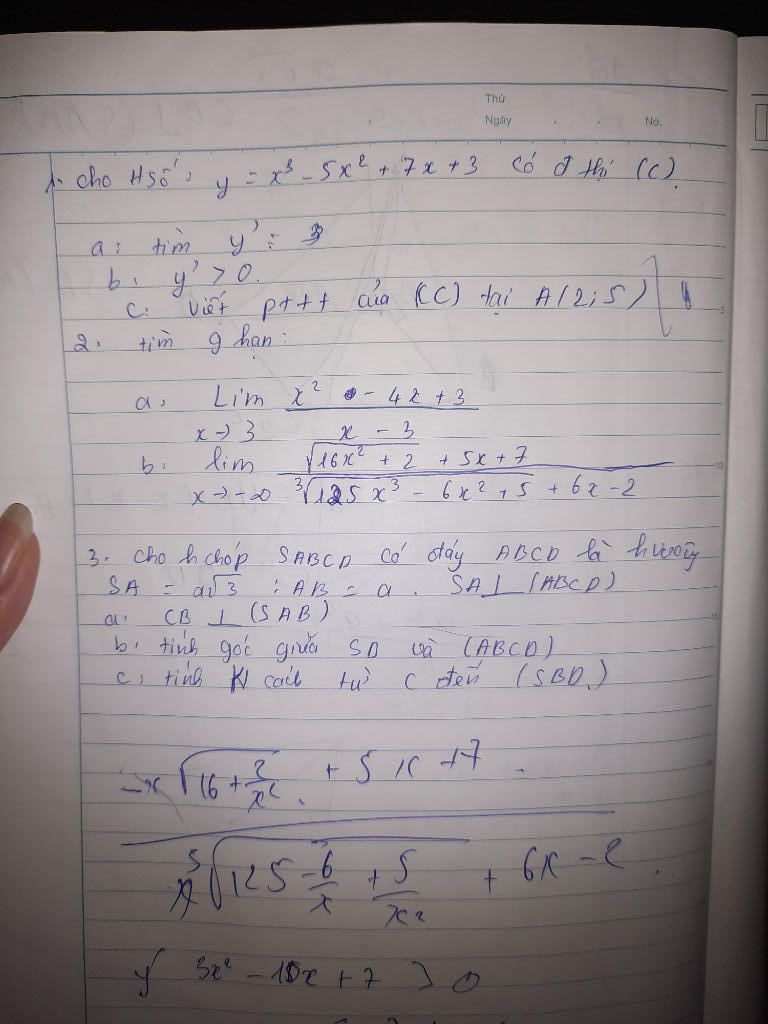 Thứ
Ngày . . No.
1. Cho HSố: y = x³ - 5x² + 7x + 3 Có đ thị (C).
a: tìm y' :
b: y' > 0.
c: Viết pttt của (C) tại A(2;5)
2. tìm g hạn:
a: Lim x² - 4x + 3
x→3 x - 3
b: lim √16x² + 2 + 5x + 7
x→-∞ ³√125x³ - 6x² + 5 + 6x - 2
3. Cho h chóp SABCD có đáy ABCD là h vuông
SA = a√3 ; AB = a. SA ⊥ (ABCD)
a: CB ⊥ (SAB)
b: tính góc giữa SD và (ABCD)
c: tính K cách từ C đến (SBD.)
-x √16 + 2/x² + 5x + 7
x ³√125 - 6/x + 5/x² + 6x - 2.
y' 3x² - 10x + 7 > 0